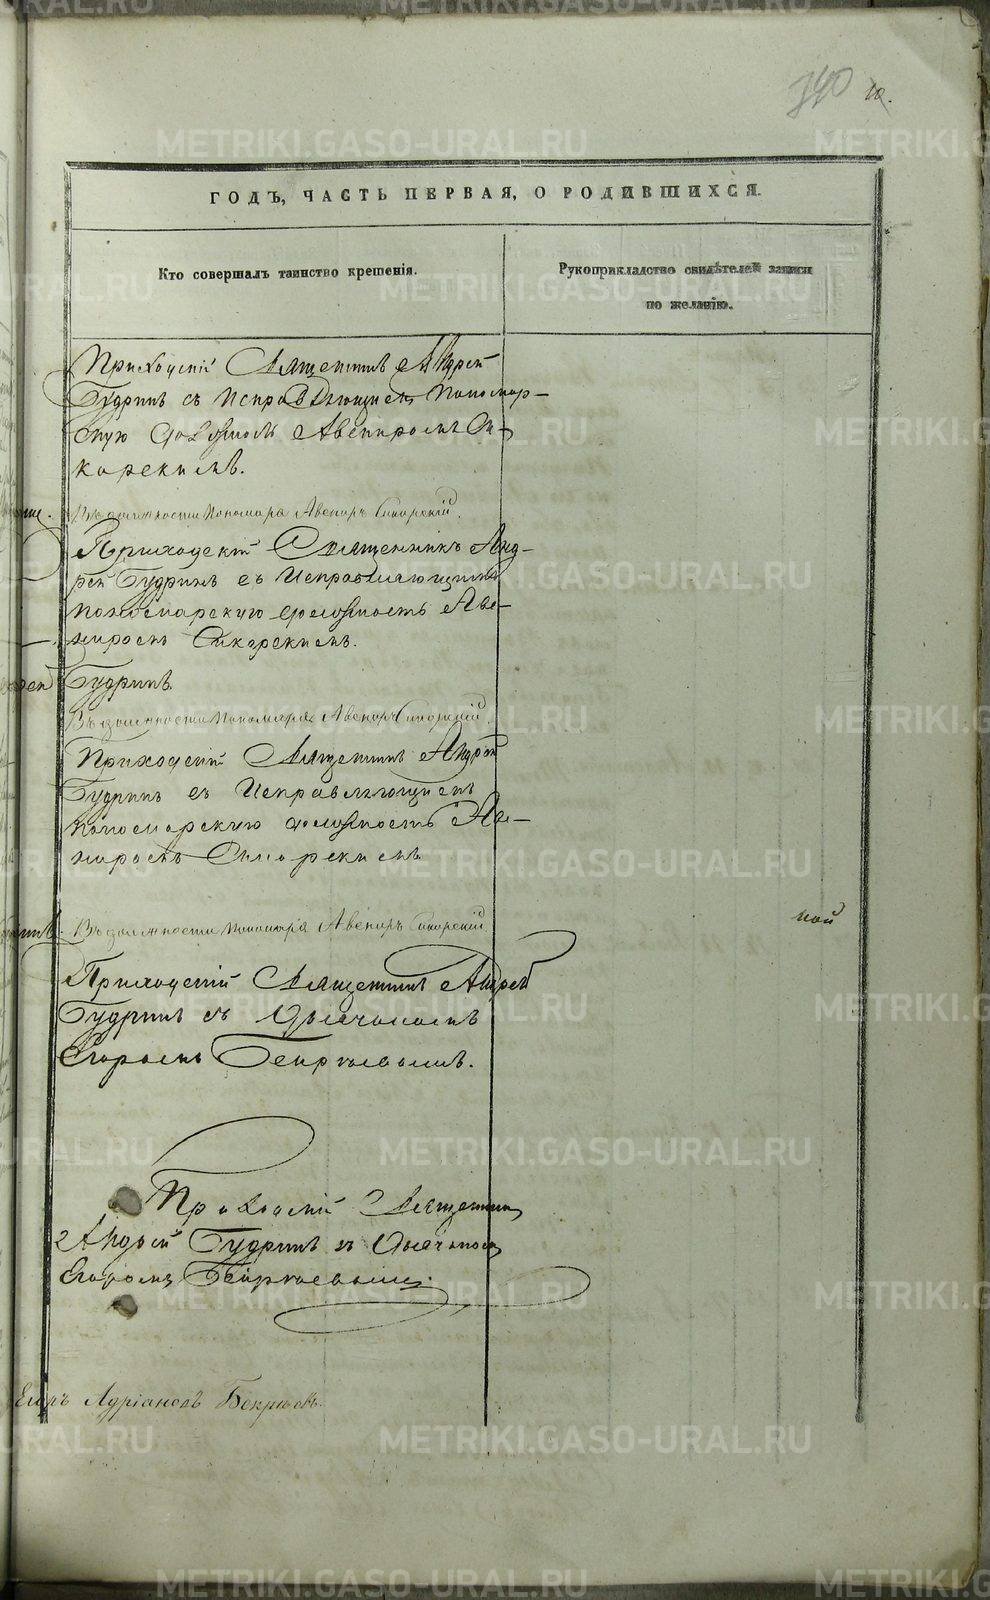 340 10.
ГОДЪ, ЧАСТЬ ПЕРВАЯ, О РОДИВШИХСЯ.
Кто совершалъ таинство крещенія.
Рукоприкладство свидѣтелей записи
по желанію.
Приходскій Священникъ Андрей
Будринъ съ Исправляющимъ Пономар-
скую должность Авениромъ Си-
корскимъ.
Въ должности Пономаря Авениръ Сикорскій.
Приходскій Священникъ Анд-
рей Будринъ съ Исправляющимъ
пономарскую должность Аве-
ниромъ Сикорскимъ.
Будринъ
Въ должности Пономаря Авениръ Сикорскій.
Приходскій Священникъ Андрей
Будринъ съ Исправляющимъ
пономарскую должность Аве-
ниромъ Сикорскимъ
Въ должности пономаря Авениръ Сикорскій
ной
Приходскій Священникъ Андрей
Будринъ съ Дьячкомъ
Егоромъ
Приходскій Священникъ
Андрей Будринъ съ Дьячкомъ
Егоромъ
Егоръ Адріановъ
METRIKI.GASO-URAL.RU